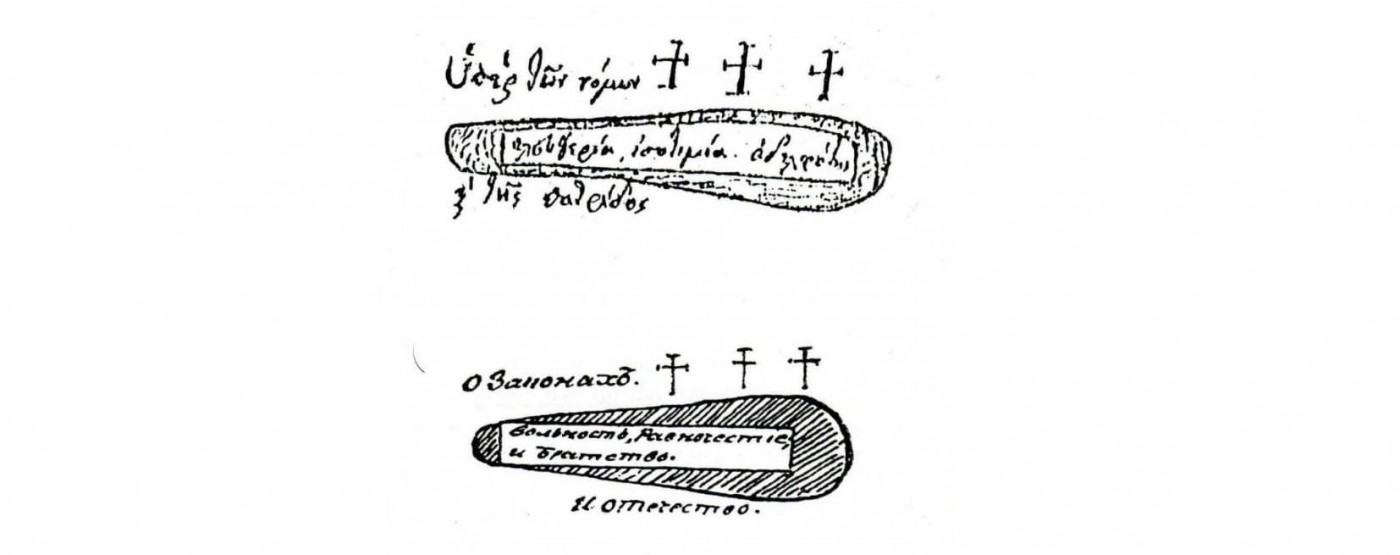 Ὑπέρ τῶν νόμων
ἐλευθερία, ἰσοτιμία. ἀδελφότης
ϗ τῆς πατρίδος
О Законахъ.
Вольность, Равночестіе,
и братство.
И отечество.